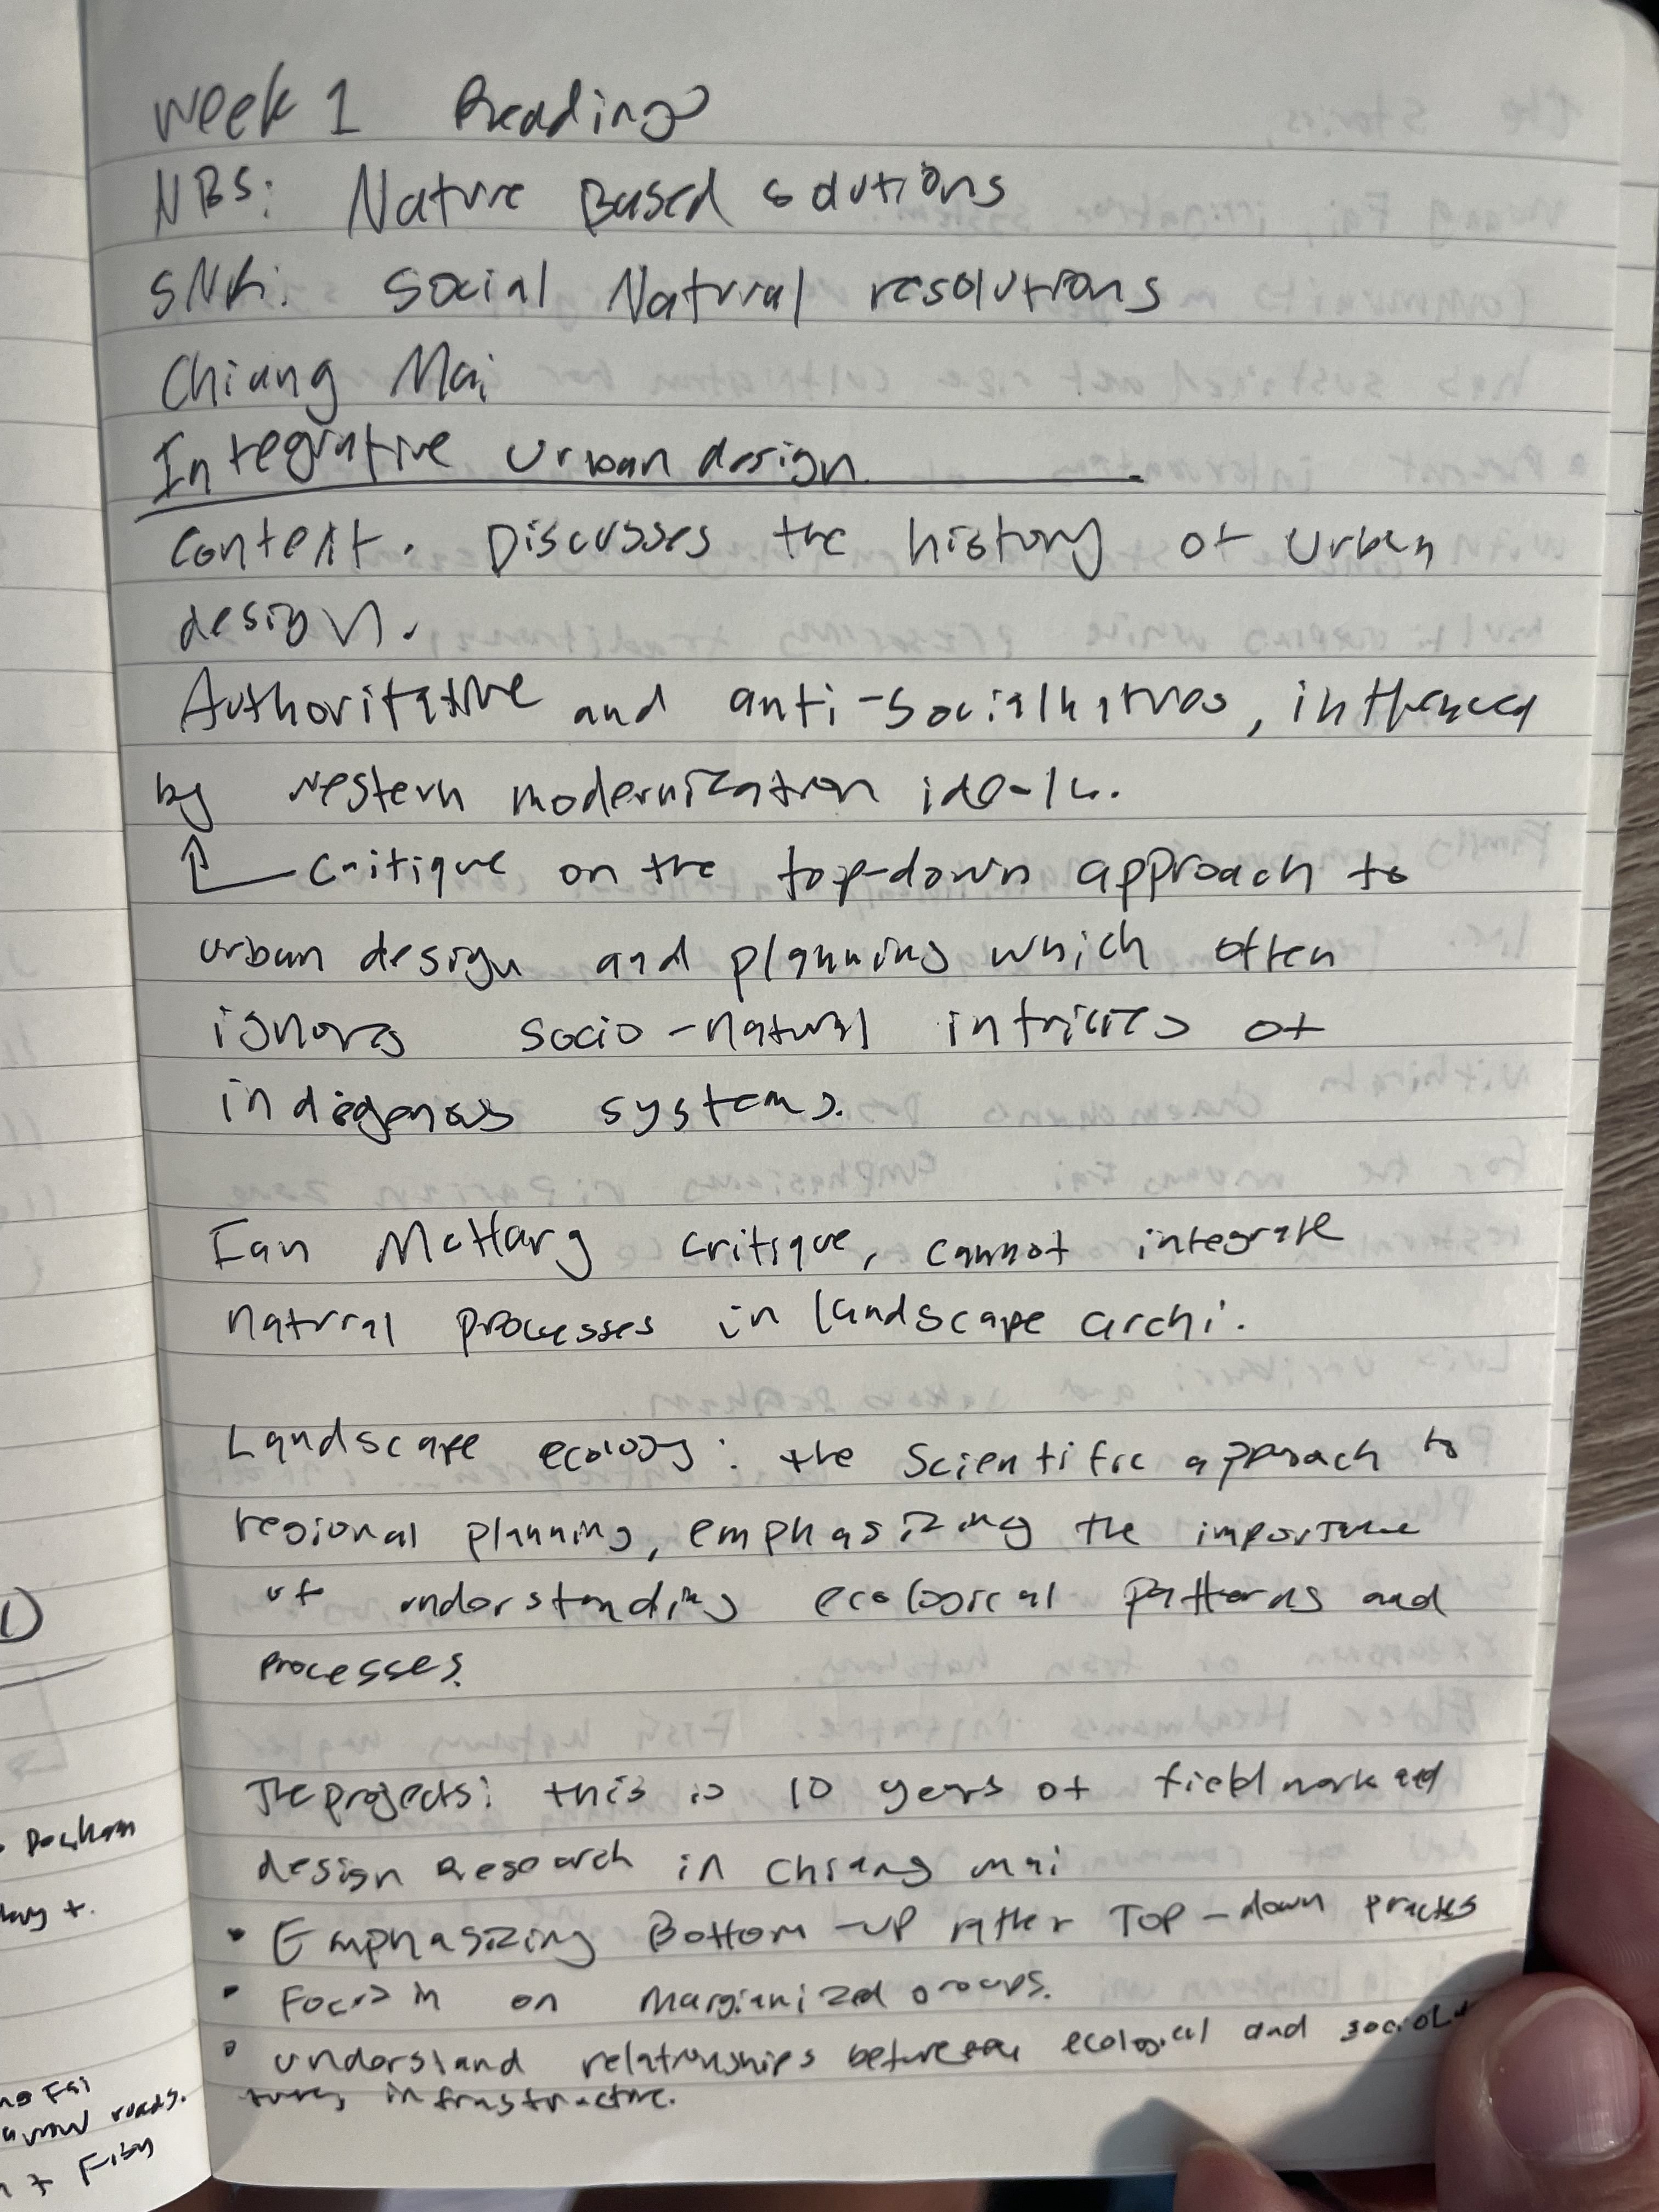 Week 1 Readings
NBS: Nature Based solutions
SNR: Social Natural resolutions
Chiang Mai
Integrative Urban design
Context. Discusses the history of Urban
design.
Authoritative and anti-socialnatures, influenced
by western modernization
Critique on the top-down approach to
urban design and planning which often
ignores socio-natural of
indegenous systems.
Ian McHarg critique, cannot integrate
natural processes in landscape archi.
Landscape ecology: the Scientific approach to
regional planning, emphasizing the importance
of understanding ecological patterns and
processes.
The projects: this is 10 years of fieldwork and
design Research in Chiang mai
• Emphasizing Bottom-up rather Top-down practices
• Focus in on Marginalized groups.
• understand relationships between ecological and
infrastructure.
Fai
roads.
+ Fish